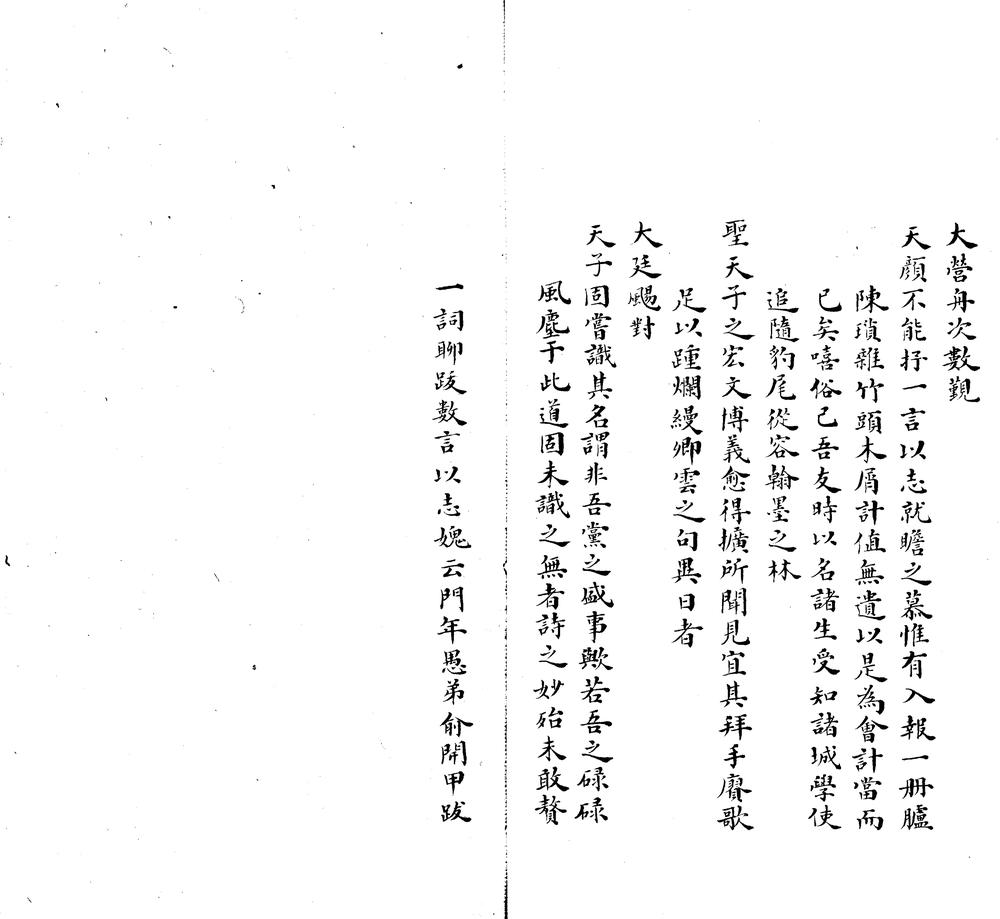 大營舟次數覲
天顏不能抒一言以志就瞻之慕惟有入報一冊臚
陳瑣雜竹頭木屑計值無遺以是為會計當而
已矣嘻俗已吾友時以名諸生受知諸城學使
追隨豹尾從容翰墨之林
聖天子之宏文博義愈得擴所聞見宜其拜手賡歌
足以踵爛縵卿雲之句異日者
大廷颺對
天子固嘗識其名謂非吾黨之盛事歟若吾之碌碌
風塵于此道固未識之無者詩之妙殆未敢贅
一詞聊跋數言以志媿云門年愚弟俞開甲跋